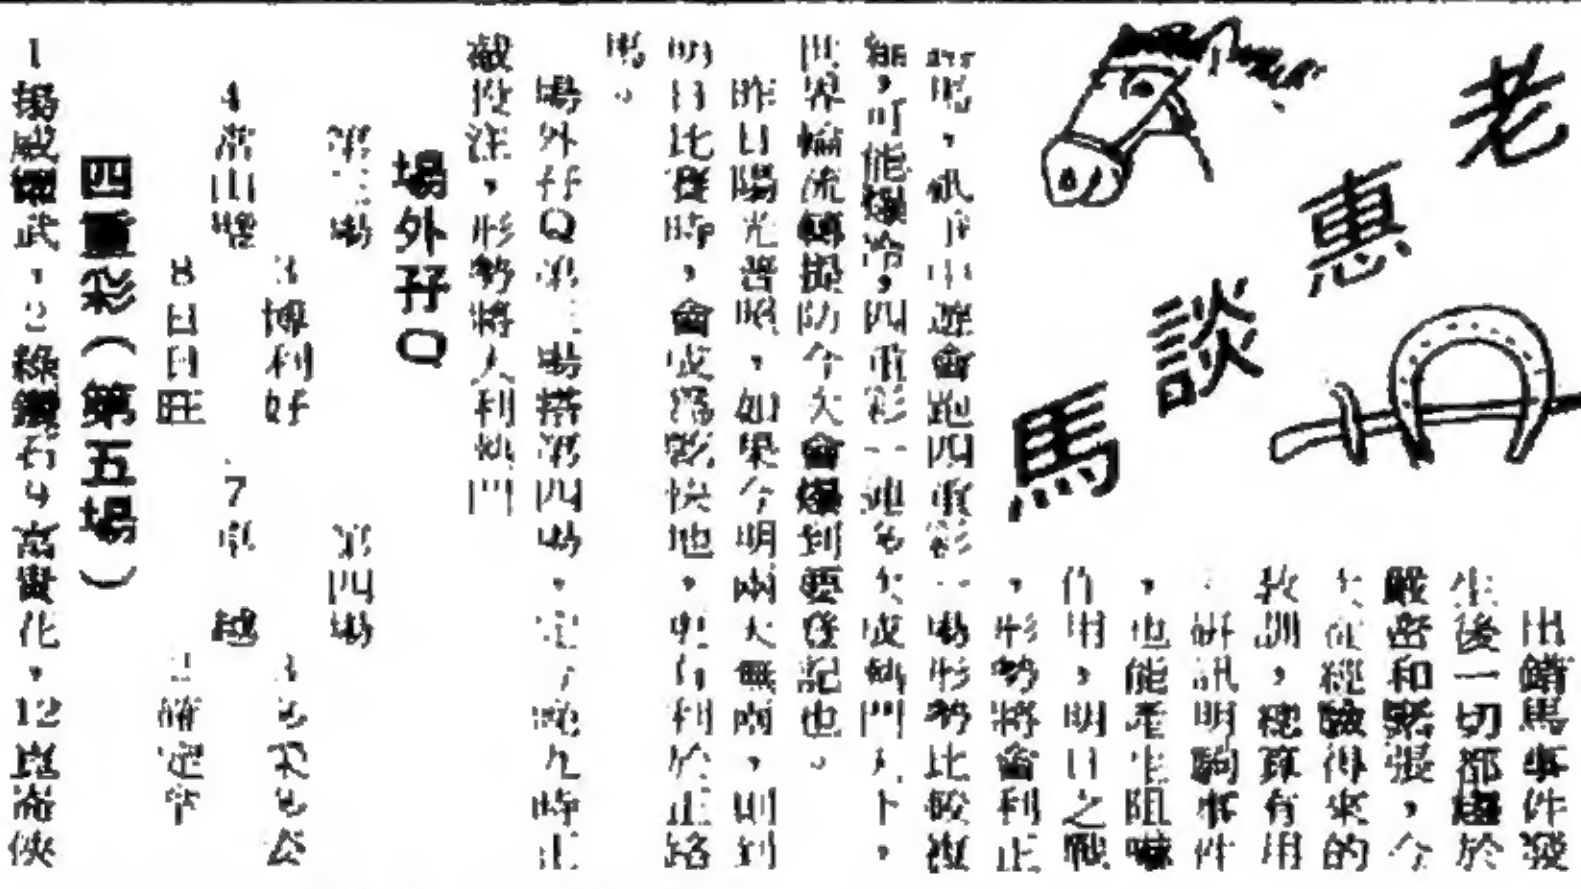 老惠談馬
出錯馬事件發
生後一切都趨於
嚴密和緊張，今
次從經驗得來的
教訓，總算有用
研訊明駒事件
，也能產生阻嚇
作用，明日之戰
，形勢將會利正
路，紙片中游會跑四重彩一場形勢比較複
雜，可能爆冷，四重彩一連多次成熱門天下，
世界輪流轉提防今次會爆到要登記也。
昨日陽光普照，如果今明兩天無雨，則到
明日比賽時，會成為影快地，更有利於正路
馬。
場外孖Q
場外孖Q第三場搭第四場，定了晚九時正
截投注，形勢將大利熱門
第三場
3博利好
4常山
8日日旺
第四場
7卓越
四重彩（第五場）
1揚威耀武，2綠鑽石4富貴花，12崑崙俠